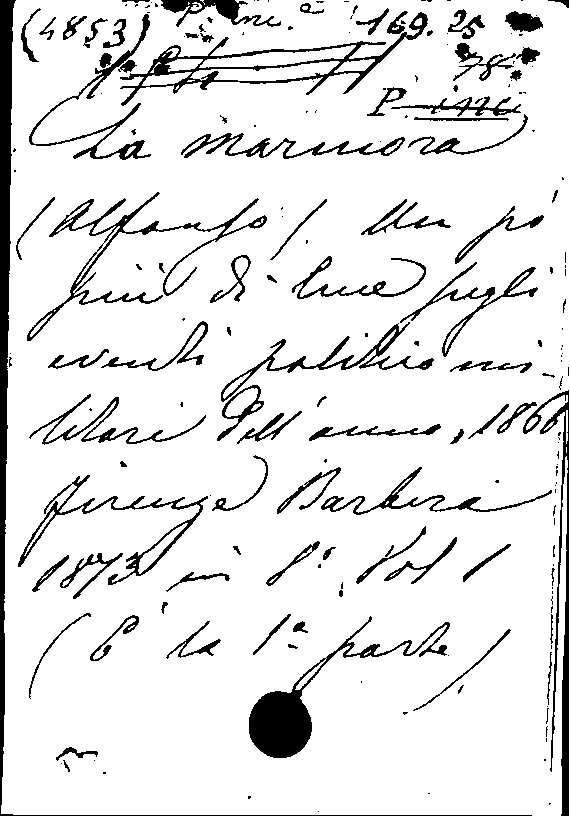 (4853) 169.25
78
La Marmora
(Alfonso). Un pó
più di luce sugli
eventi politico mi-
litari dell'anno, 1866
Firenze Barbera
1873 in 8°. Vol 1
(È la 1ª parte)